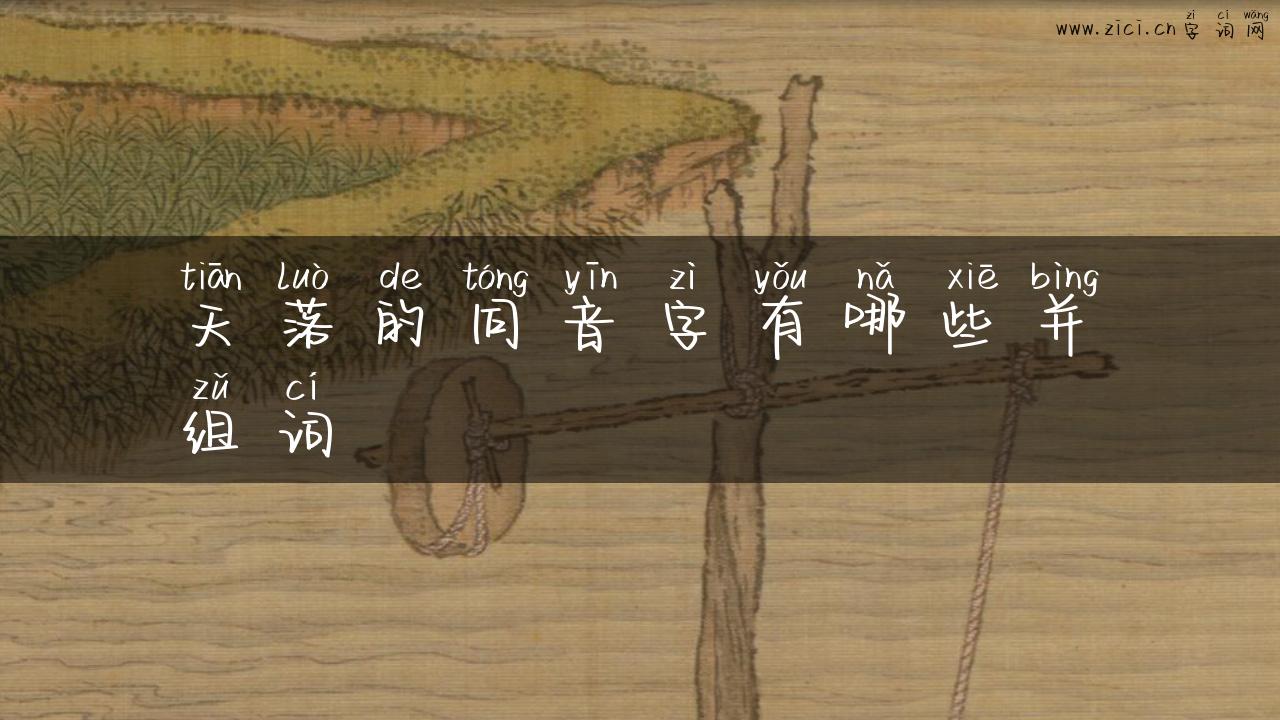 zì cí wǎng
www.zici.cn 字词网
tiān luò de tóng yīn zì yǒu nǎ xiē bìng
天落的同音字有哪些并
zǔ cí
组词